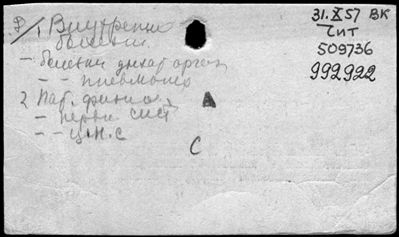 1, Внутренние
болезни
- болезни дыхат орган
- - пневмония
2 Пат. физиол
- нервн сист
- - ц.н.с
31. X 57 ВК
Чит
509736
992922
А
С